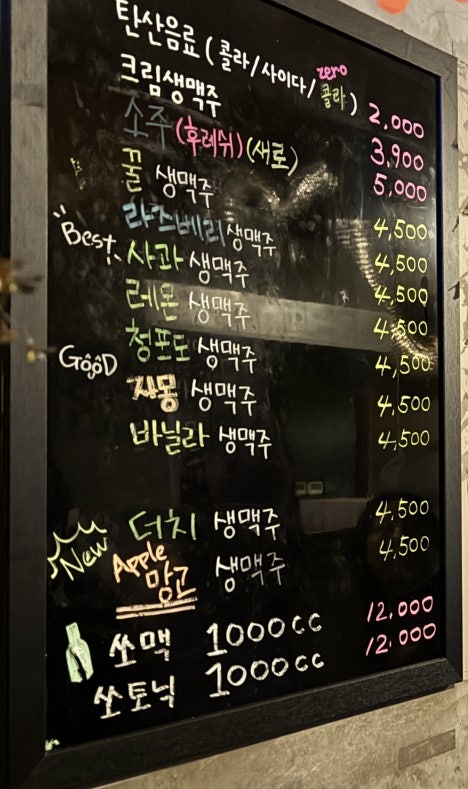 탄산음료 (콜라/사이다/zero 콜라) 2,000
크림생맥주 3,900
소주 (후레쉬) (새로) 5,000
꿀 생맥주 4,500
라즈베리 생맥주 4,500
Best 사과 생맥주 4,500
레몬 생맥주 4,500
청포도 생맥주 4,500
GOOD 자몽 생맥주 4,500
바닐라 생맥주 4,500
더치 생맥주 4,500
New Apple 망고 생맥주 4,500
쏘맥 1000cc 12,000
쏘토닉 1000cc 12,000